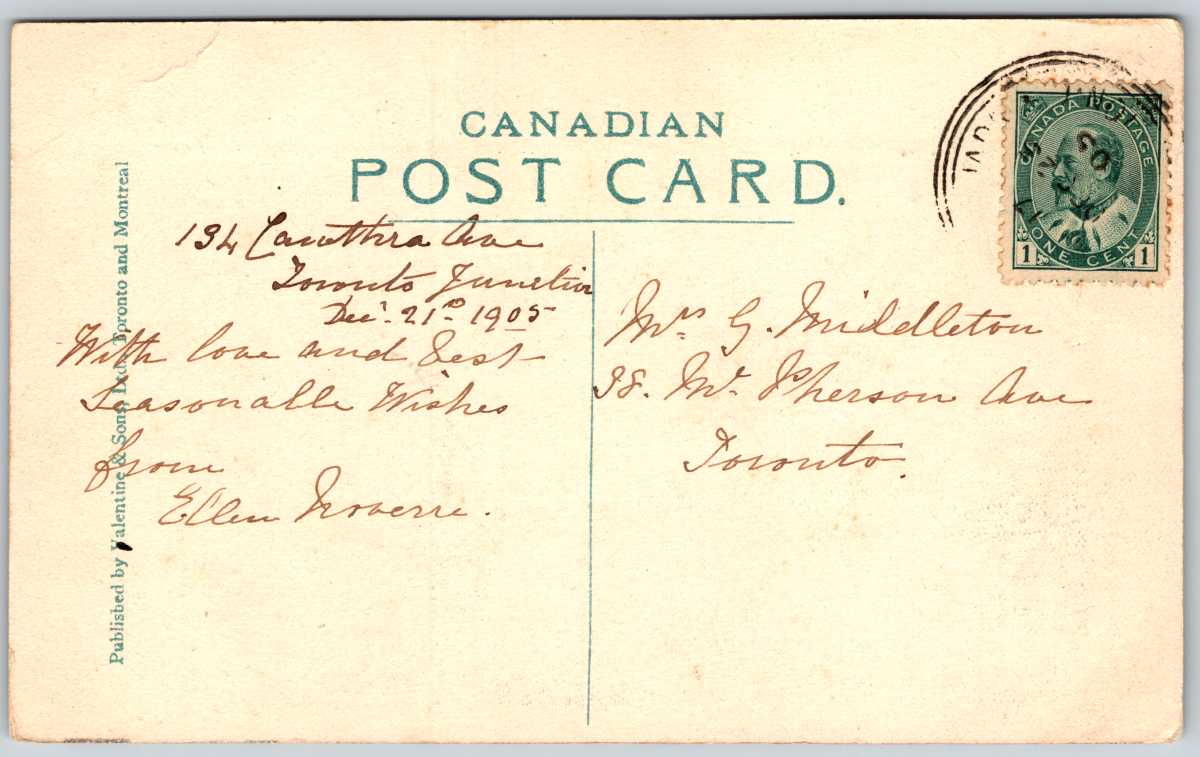 CANADIAN
POST CARD.
134 Cawthra Ave
Toronto Junction
Dec. 21st 1905
With love and best
Seasonable Wishes
from
Ellen Noverre.
Mrs G. Middleton
98. Mc Pherson Ave
Toronto.
Published by Valentine & Sons, Ltd. Toronto and Montreal
CANADA POSTAGE
1 ONE CENT 1